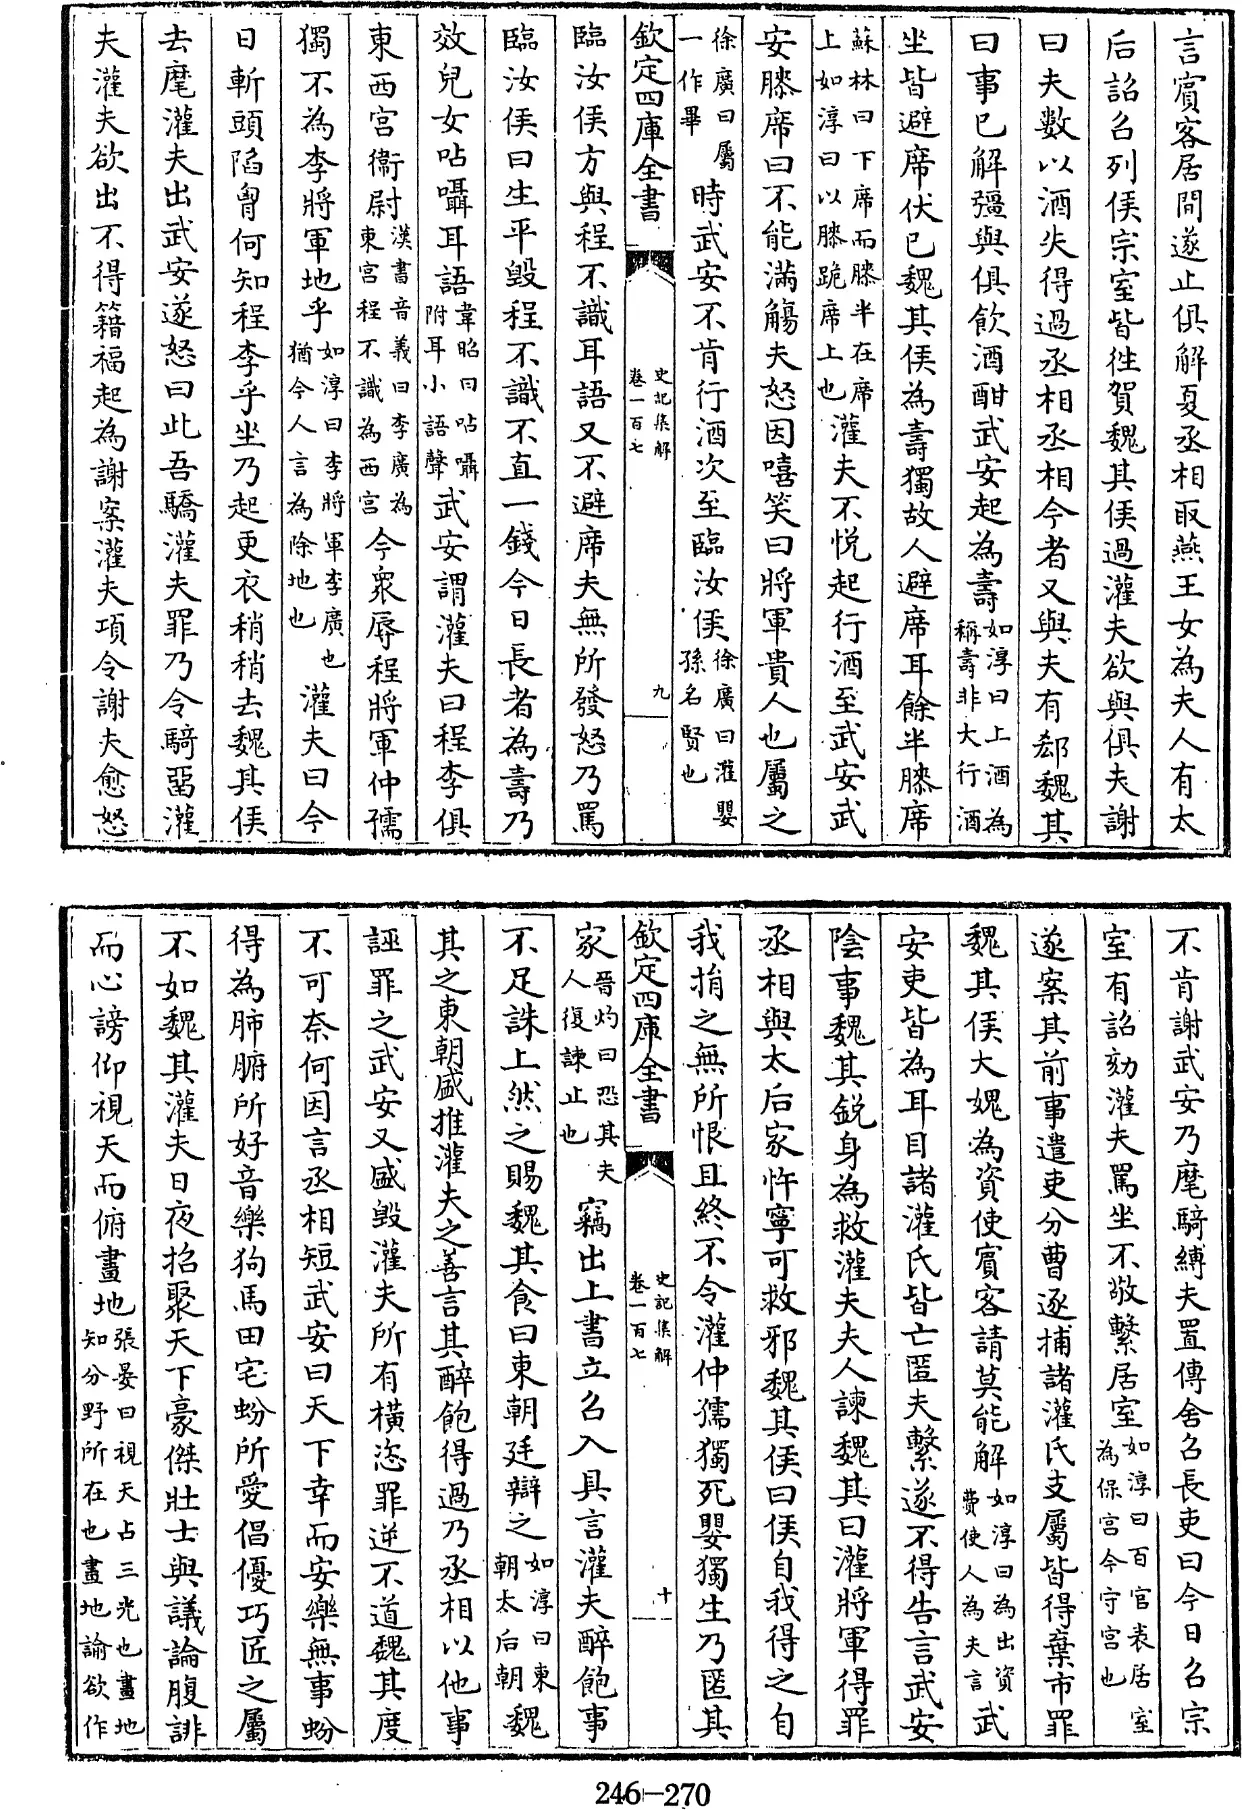 言賓客居間遂止俱解夏丞相取燕王女為夫人有太
后詔召列侯宗室皆徃賀魏其侯過灌夫欲與俱夫謝
曰夫數以酒失得過丞相丞相今者又與夫有郄魏其
曰事已解彊與俱飲酒酣武安起為壽如淳曰上酒為稱壽非大行酒
坐皆避席伏已魏其侯為壽獨故人避席耳餘半膝席
蘇林曰下席而膝半在席上如淳曰以膝跪席上也灌夫不悅起行酒至武安武
安膝席曰不能滿觴夫怒因嘻笑曰將軍貴人也屬之
徐廣曰屬一作畢時武安不肯行酒次至臨汝侯徐廣曰灌嬰孫名賢也
欽定四庫全書
史記集解
卷一百七
九
臨汝侯方與程不識耳語又不避席夫無所發怒乃罵
臨汝侯曰生平毀程不識不直一錢今日長者為壽乃
效兒女呫囁耳語韋昭曰呫囁附耳小語聲武安謂灌夫曰程李俱
東西宮衞尉漢書音義曰李廣為東宮程不識為西宮今衆辱程將軍仲孺
獨不為李將軍地乎如淳曰李將軍李廣也猶今人言為除地也灌夫曰今
日斬頭陷胷何知程李乎坐乃起更衣稍稍去魏其侯
去麾灌夫出武安遂怒曰此吾驕灌夫罪乃令騎畱灌
夫灌夫欲出不得籍福起為謝案灌夫項令謝夫愈怒
不肯謝武安乃麾騎縛夫置傳舍召長吏曰今日召宗
室有詔劾灌夫罵坐不敬繫居室如淳曰百官表居室為保宮今守宮也
遂案其前事遣吏分曹逐捕諸灌氏支屬皆得棄市罪
魏其侯大媿為資使賓客請莫能解如淳曰為出資費使人為夫言武
安吏皆為耳目諸灌氏皆亡匿夫繫遂不得告言武安
陰事魏其銳身為救灌夫夫人諫魏其曰灌將軍得罪
丞相與太后家忤寧可救邪魏其侯曰侯自我得之自
我捐之無所恨且終不令灌仲孺獨死嬰獨生乃匿其
欽定四庫全書
史記集解
卷一百七
十
家晉灼曰恐其夫人復諫止也竊出上書立召入具言灌夫醉飽事
不足誅上然之賜魏其食曰東朝廷辯之如淳曰東朝太后朝魏
其之東朝盛推灌夫之善言其醉飽得過乃丞相以他事
誣罪之武安又盛毀灌夫所有橫恣罪逆不道魏其度
不可奈何因言丞相短武安曰天下幸而安樂無事蚡
得為肺腑所好音樂狗馬田宅蚡所愛倡優巧匠之屬
不如魏其灌夫日夜招聚天下豪傑壯士與議論腹誹
而心謗仰視天而俯畫地張晏曰視天占三光也畫地知分野所在也畫地諭欲作
246-270